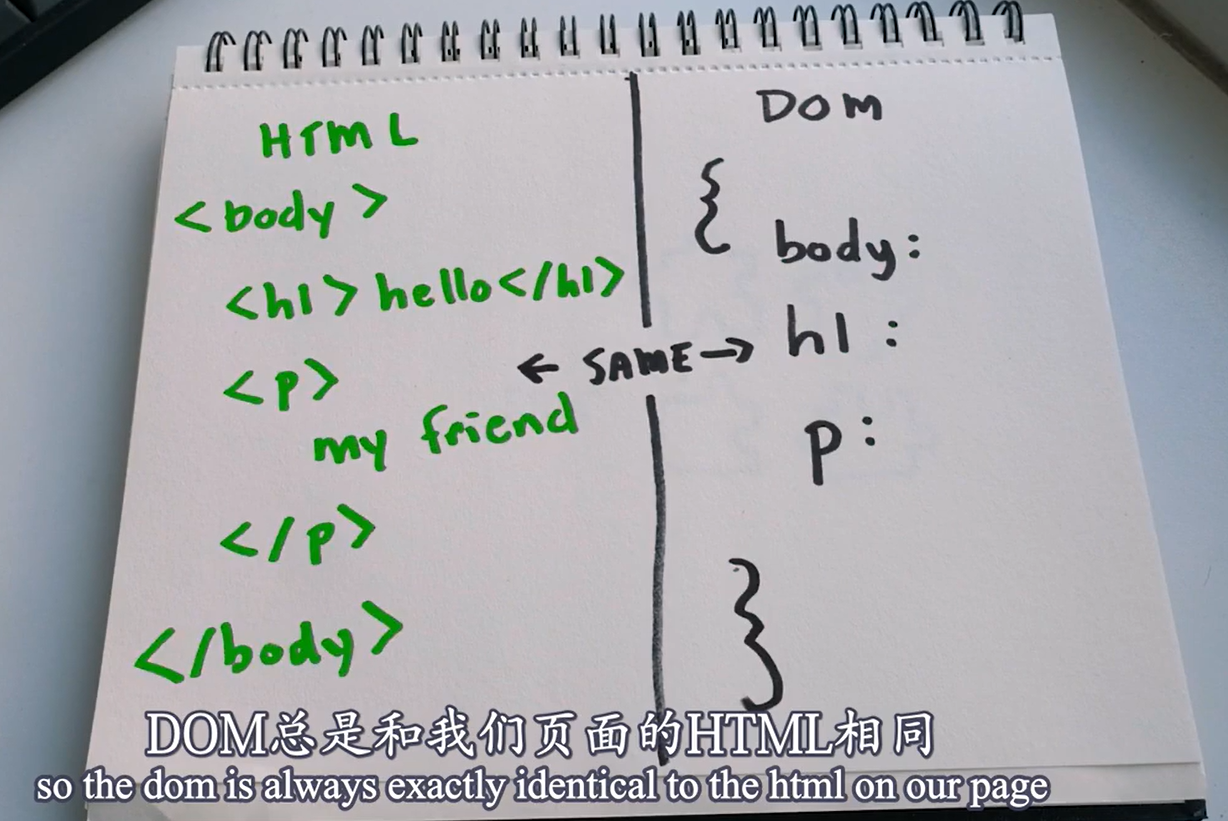 HTML
<body>
<h1>hello</h1>
<p>
my friend
</p>
</body>
← SAME →
DOM
{
body:
h1:
p:
}
DOM总是和我们页面的HTML相同
so the dom is always exactly identical to the html on our page